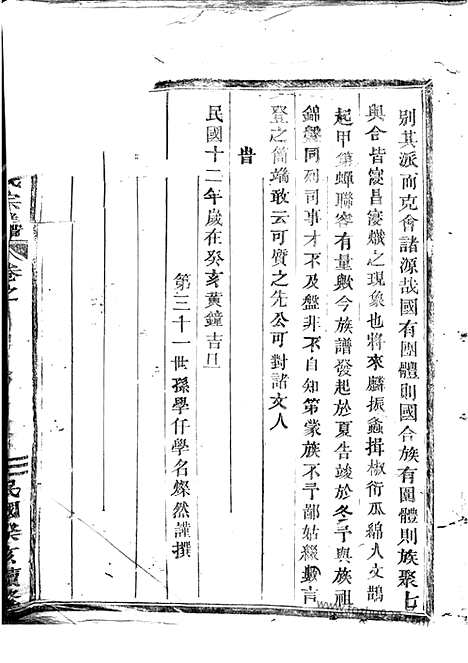 別其派而克會諸源哉國有團體則國合族有團體則族聚七
與合皆寖昌寖熾之現象也將來麟振螽揖椒衍瓜綿人文鵲
起甲第蟬聯寧有量數今族譜發起於夏告竣於冬予與族祖
錦馨同列司事才不及盤非不自知第蒙族不予鄙姑綴數言
登之簡端敢云可質之先公可對諸文人
旹
民國十二年歲在癸亥黃鐘吉旦
第三十一世孫學仟學名燦然謹撰
氏宗譜 卷之
民國癸亥續修